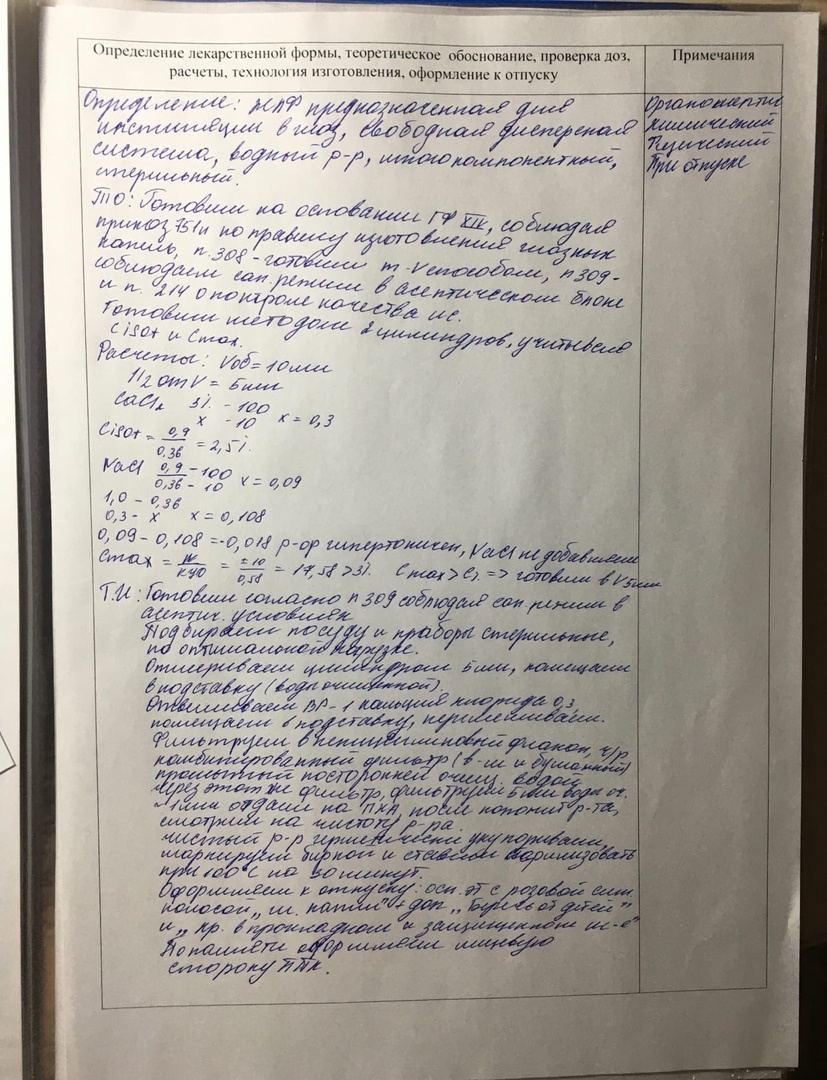 Определение лекарственной формы, теоретическое обоснование, проверка доз,
расчеты, технология изготовления, оформление к отпуску
Примечания
Определение: ЖЛФ предназначенная для
инстиляции в глаз, свободная дисперсная
система, водный р-р, многокомпонентный,
стерильный.
Органолептич
химический
Физический
При отпуске
ТО: Готовим на основании ГФ XII, соблюдая
приказ 751н по правилу изготовления глазных
капель, п. 308 - готовим m-V способом, п 309-
соблюдаем сан.режим в асептическом блоке
и п. 214 о контроле качества лс.
Готовим методом 2 цилиндров, учитывая
Cisot и Cmax.
Расчеты: Vоб = 10 мл
1/2 от V = 5 мл
CaCl2 3% - 100
x - 10 x = 0,3
Cisot = 0,9/0,36 = 2,5%
NaCl 0,9 - 100
0,36 - 10 x = 0,09
1,0 - 0,36
0,3 - x x = 0,108
0,09 - 0,108 = -0,018 р-ор гипертоничен, NaCl не добавляем
Cmax = N/КУО = ±10/0,58 = 17,58 > 3%. Cmax > C => готовим в V 5 мл
Т.И.: Готовим согласно п 309 соблюдая сан.режим в
асептич. условиях
Подбираем посуду и приборы стерильные,
по оптимальной нагрузке.
Отмериваем цилиндром 5 мл, помещаем
в подставку (воды очищенной).
Отвешиваем ВР-1 кальция хлорида 0,3
помещаем в подставку, перемешиваем.
Фильтруем в пенициллиновый флакон, ч/р
комбинированный фильтр (в-м и бумажный)
промытый посторонней очищ. водой
через этот же фильтр, фильтруем 5 мл воды оч.
~ 1 мл отдаем на ПХА, после р-та,
смотрим на чистоту р-ра.
чистый р-р герметически укупориваем,
маркируем биркой и ставим стерилизовать
при 100°С на 30 минут.
Оформляем к отпуску: осн. эт с розовой сигн.
полосой „гл. капли" + доп „Беречь от детей"
и „хр. в прохладном и защищенном м-е"
По памяти оформляем лицевую
сторону ППК.